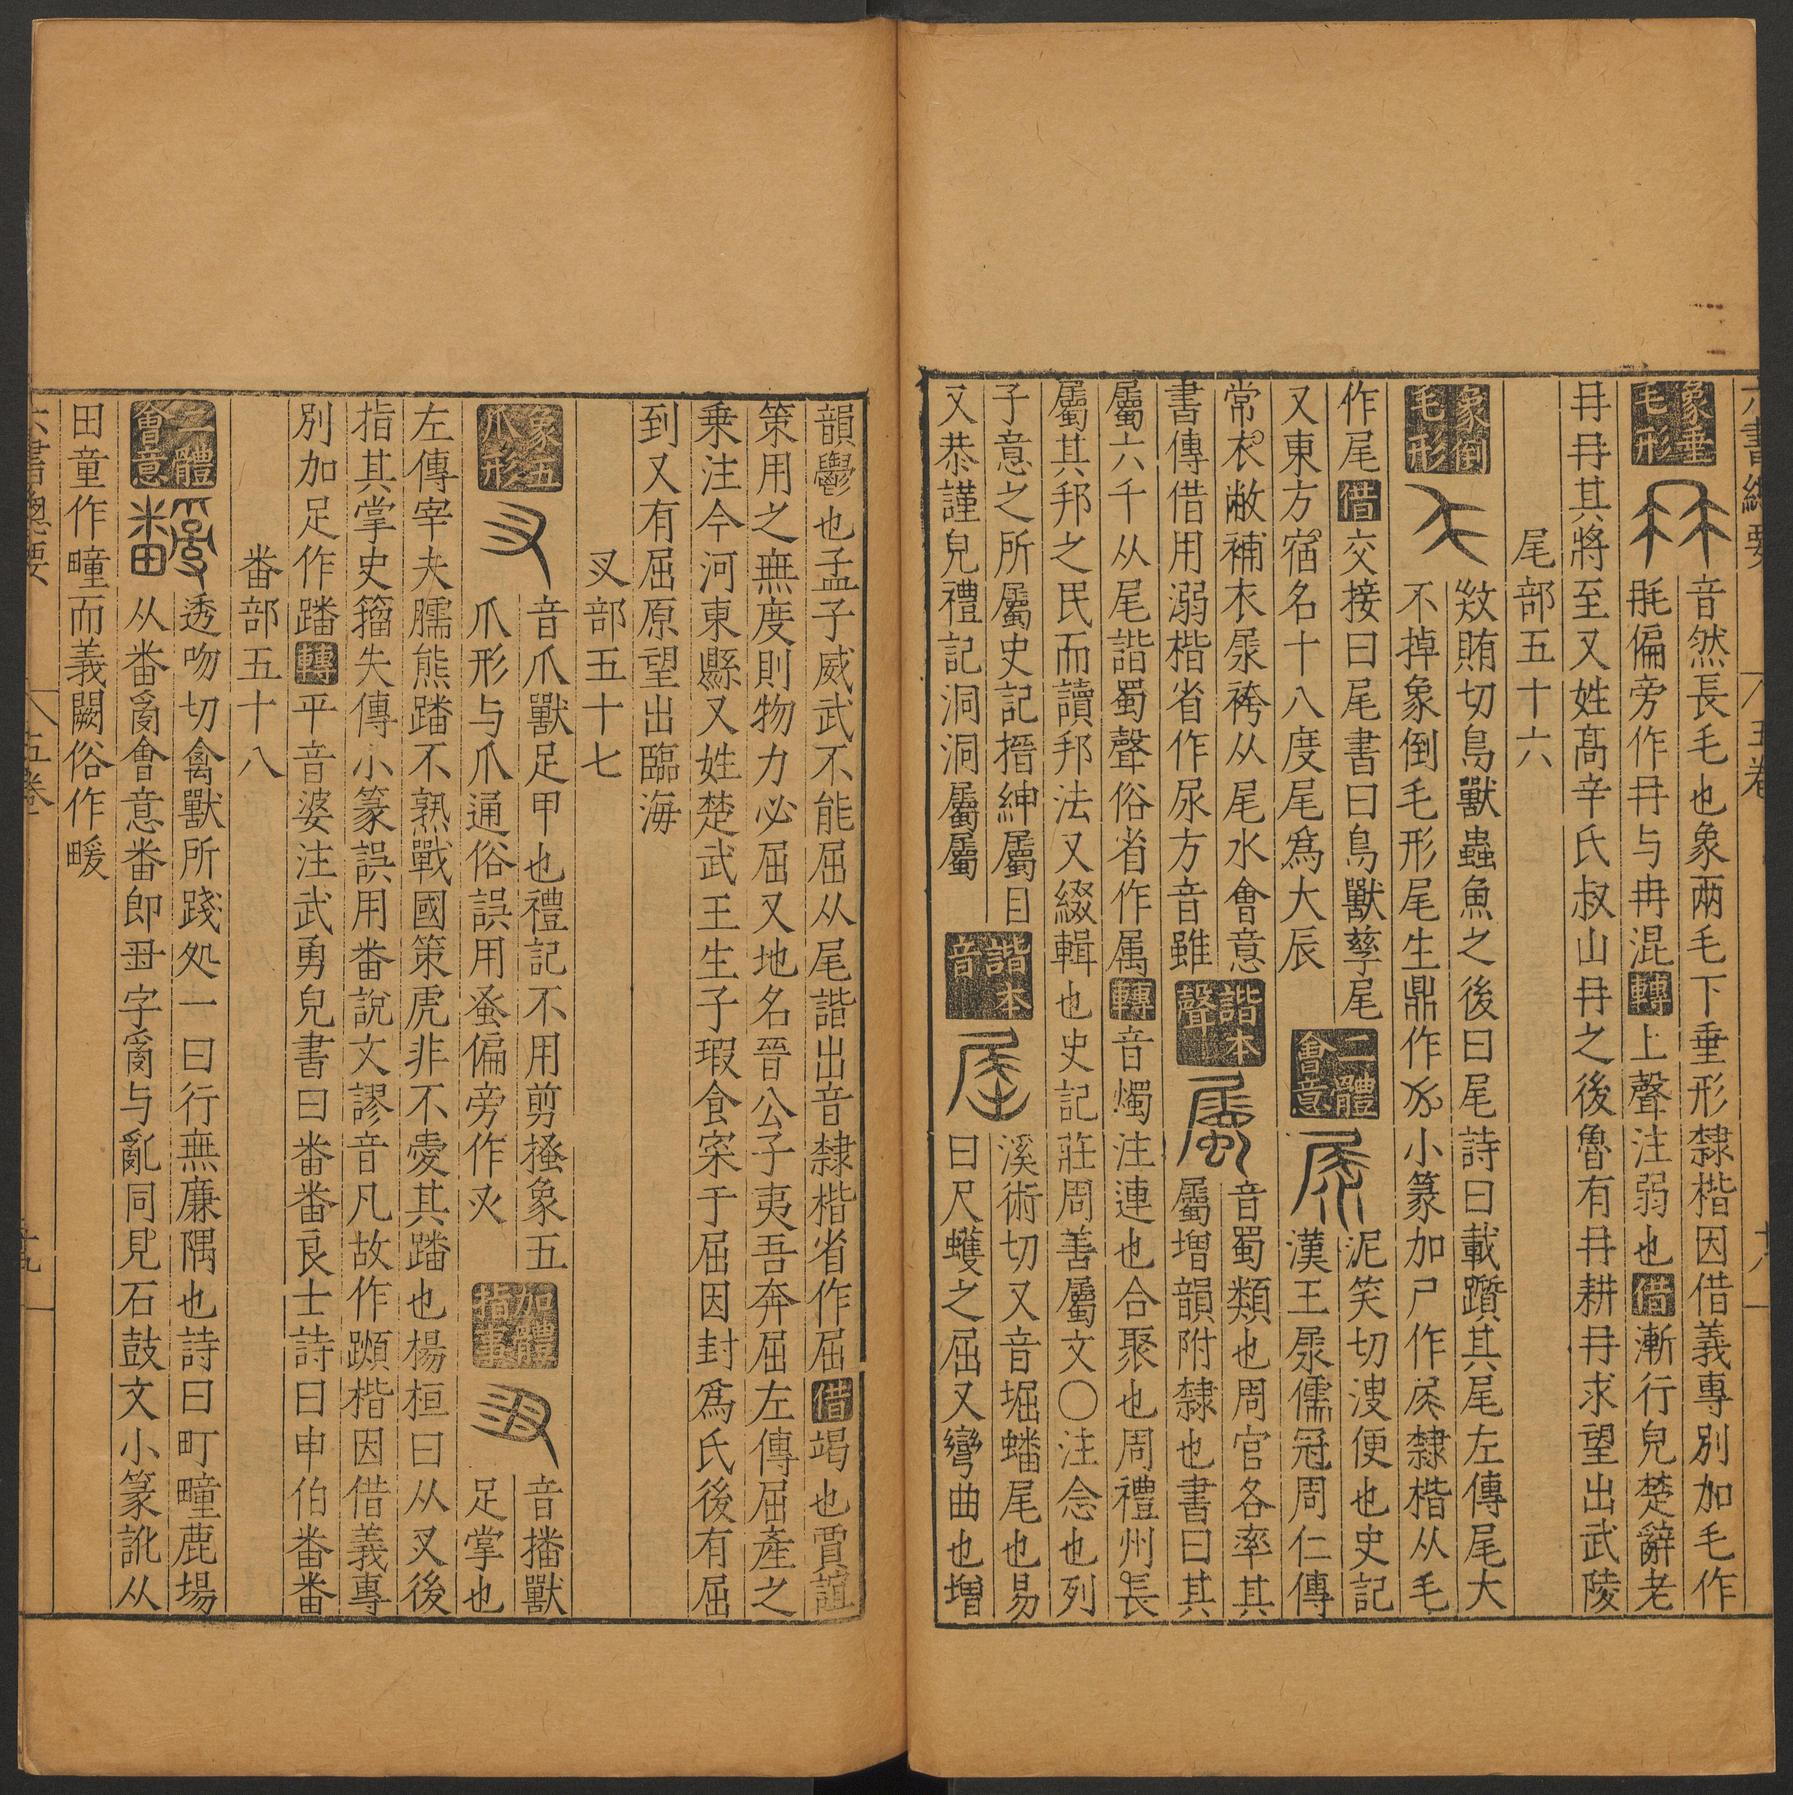 六書總要
五卷
象垂毛形
音然長毛也象兩毛下垂形隸楷因借義專別加毛作
䎃偏旁作冄与冉混轉上聲注弱也借漸行皃楚辭老
冄冄其將至又姓高辛氏叔山冄之後魯有冄耕冄求望出武陵
尾部五十六
象倒毛形
敚賄切鳥獸蟲魚之後曰尾詩曰載躓其尾左傳尾大
不掉象倒毛形尾生鼎作小篆加尸作𡱒隸楷从毛
作尾借交接曰尾書曰鳥獸孳尾
又東方宿名十八度尾為大辰
二體會意
泥笑切溲便也史記
漢王𡱰儒冠周仁傳
常衣敝補衣𡱰袴从尾水會意
書傳借用溺楷省作尿方音雖
諧本聲
音蜀類也周官各率其
屬增韻附隸也書曰其
屬六千从尾諧蜀聲俗省作属轉音燭注連也合聚也周禮州長
屬其邦之民而讀邦法又綴輯也史記莊周善屬文〇注念也列
子意之所屬史記搢紳屬目
又恭謹皃禮記洞洞屬屬
諧本音
溪術切又音堀蟠尾也易
曰尺蠖之屈又彎曲也增
韻鬱也孟子威武不能屈从尾諧出音隸楷省作屈借竭也賈誼
策用之無度則物力必屈又地名晉公子夷吾奔屈左傳屈產之
乗注今河東縣又姓楚武王生子瑕食寀于屈因封為氏後有屈
到又有屈原望出臨海
叉部五十七
象五爪形
音爪獸足甲也禮記不用剪搔象五
爪形与爪通俗誤用蚤偏旁作㕚
加體指事
音播獸
足掌也
左傳宰夫臑熊蹯不熟戰國策虎非不愛其蹯也楊桓曰从叉後
指其掌史籀失傳小篆誤用番說文謬音凡故作蹞楷因借義專
別加足作蹯轉平音婆注武勇皃書曰番番良士詩曰申伯番番
番部五十八
二體會意
透吻切禽獸所踐処一曰行無廉隅也詩曰町疃鹿場
从番𤔔會意番即丑字𤔔与亂同見石鼓文小篆訛从
田童作疃而義闕俗作畽
六書總要
五卷
十九